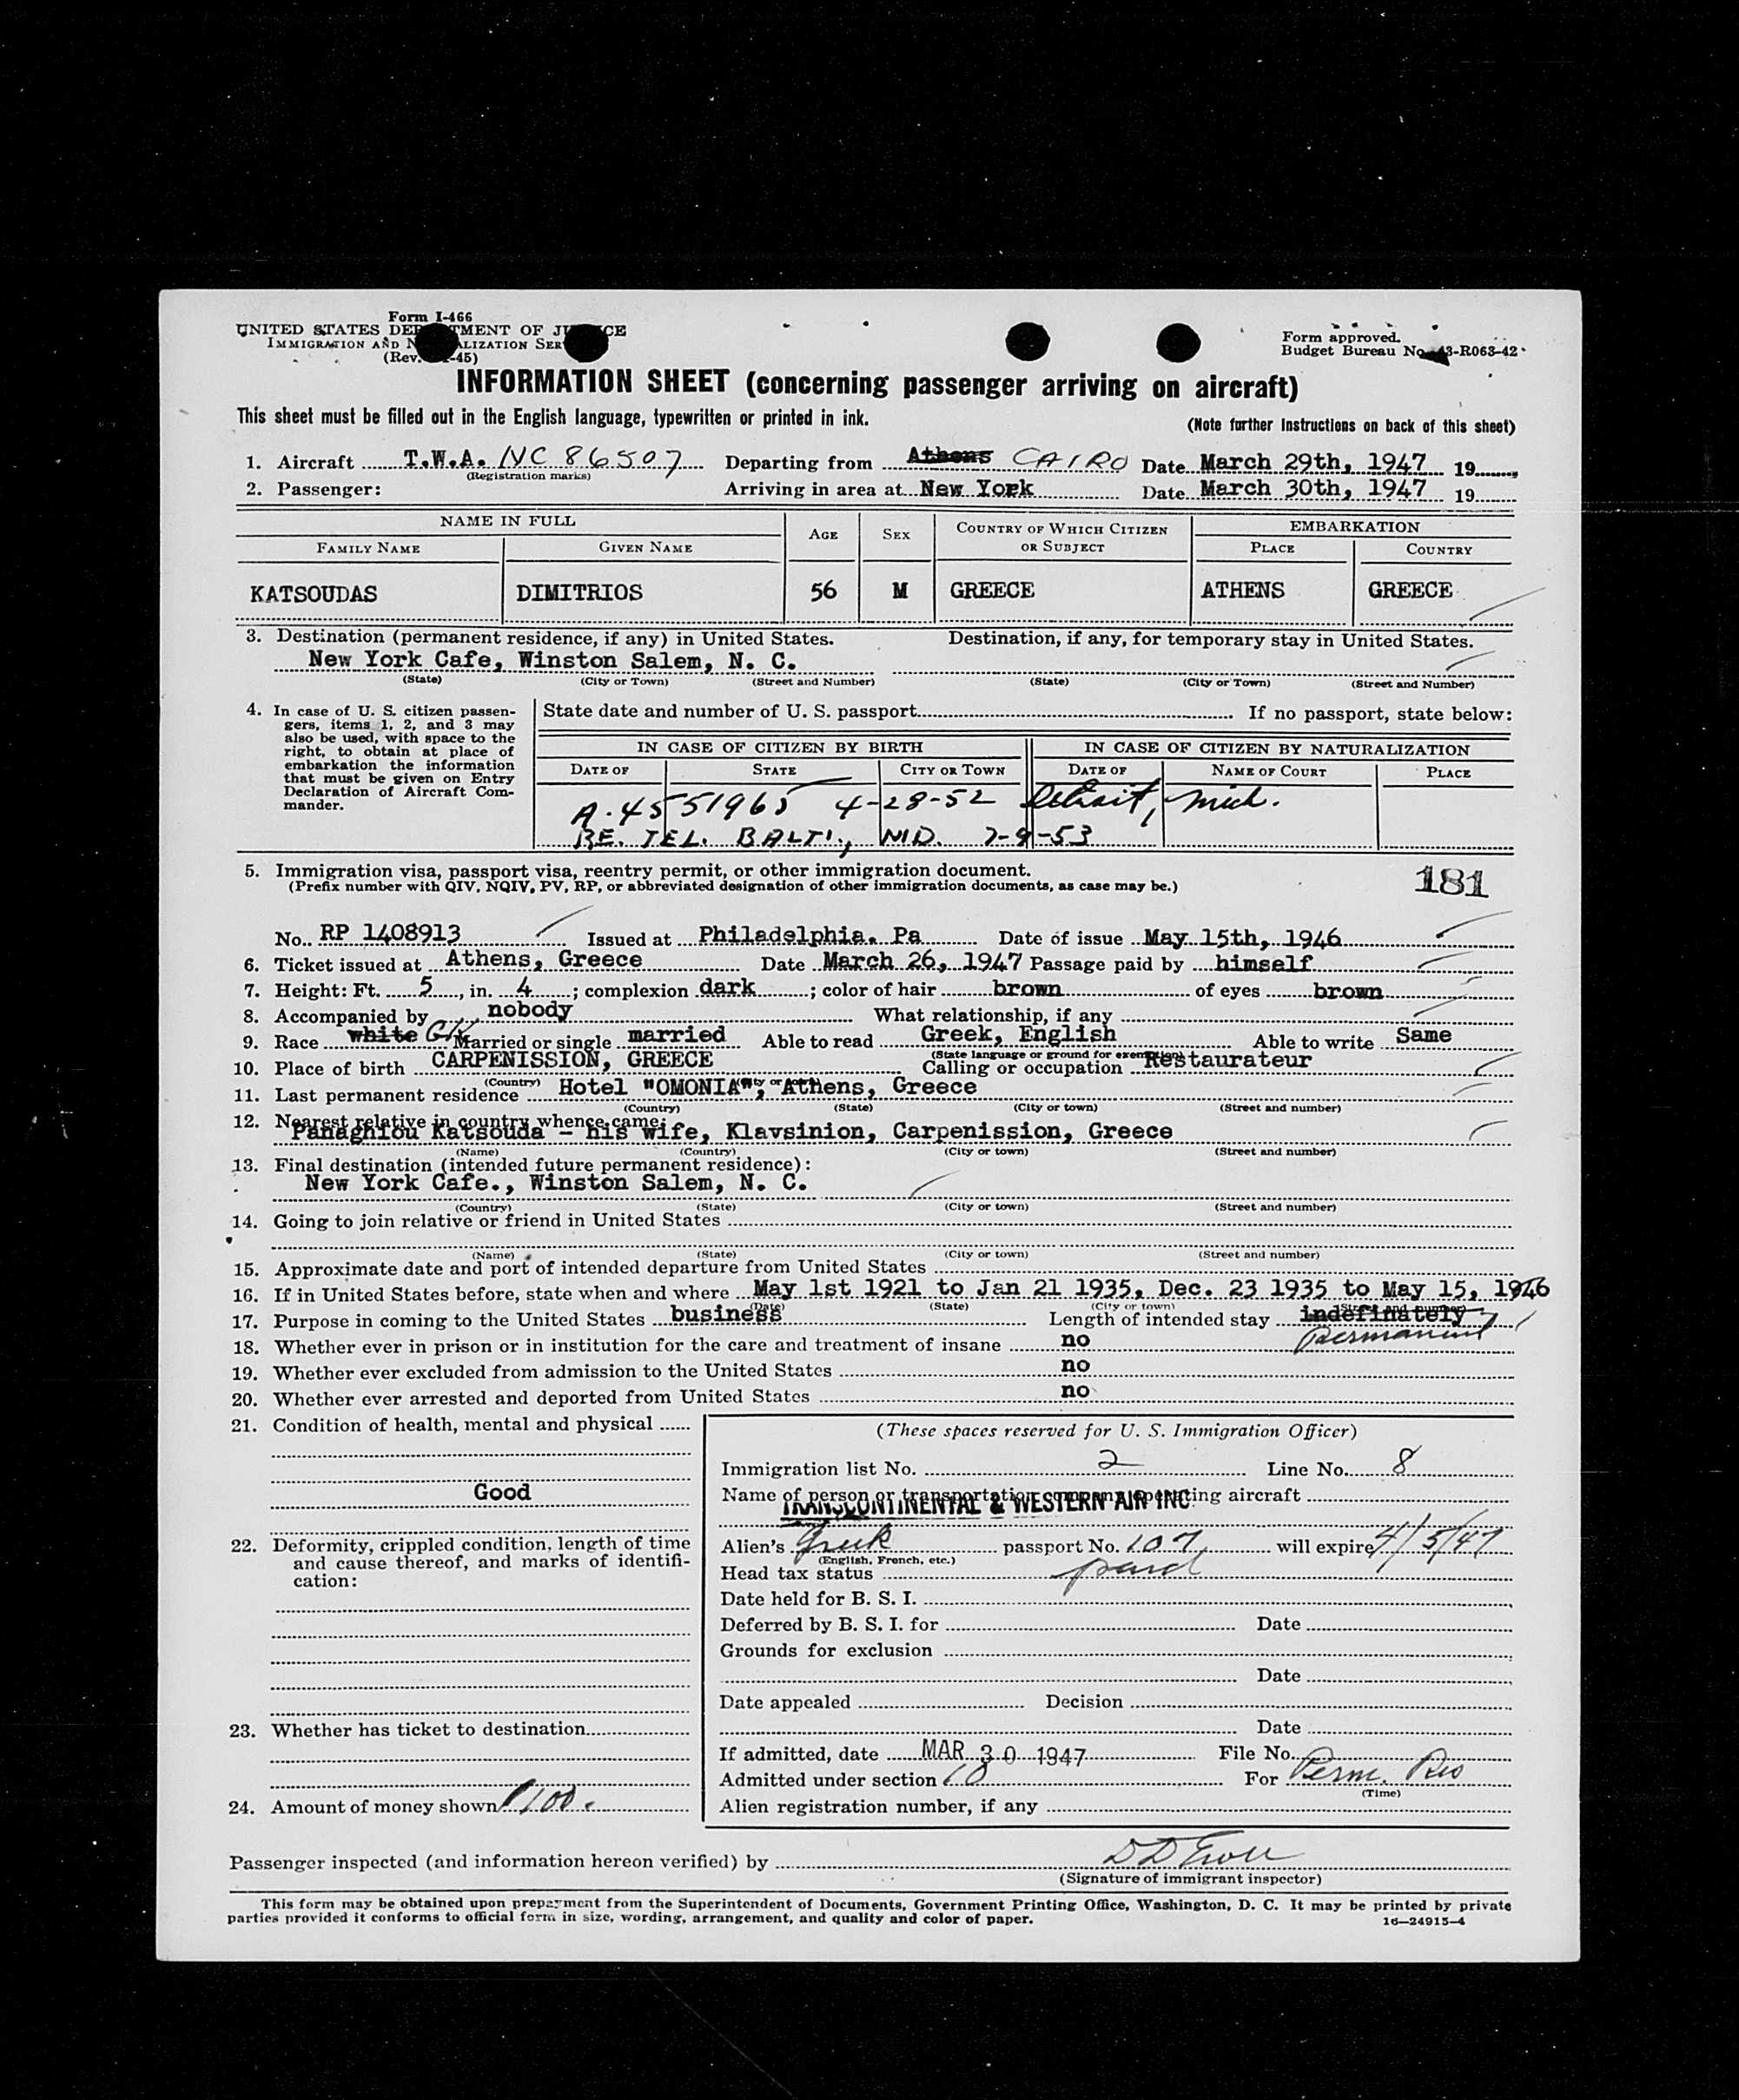 Form I-466
UNITED STATES DEPARTMENT OF JUSTICE
IMMIGRATION AND NATURALIZATION SERVICE
(Rev. -45)
Form approved.
Budget Bureau No. 43-R063-42
INFORMATION SHEET (concerning passenger arriving on aircraft)
This sheet must be filled out in the English language, typewritten or printed in ink.
(Note further Instructions on back of this sheet)
1. Aircraft T.W.A. NC 86507 Departing from Athens CAIRO Date March 29th, 1947 19
(Registration marks)
2. Passenger: Arriving in area at New York Date March 30th, 1947 19
NAME IN FULL AGE SEX COUNTRY OF WHICH CITIZEN OR SUBJECT EMBARKATION
FAMILY NAME GIVEN NAME PLACE COUNTRY
KATSOUDAS DIMITRIOS 56 M GREECE ATHENS GREECE
3. Destination (permanent residence, if any) in United States. Destination, if any, for temporary stay in United States.
New York Cafe, Winston Salem, N. C.
(State) (City or Town) (Street and Number) (State) (City or Town) (Street and Number)
4. In case of U. S. citizen passen-
gers, items 1, 2, and 3 may
also be used, with space to the
right, to obtain at place of
embarkation the information
that must be given on Entry
Declaration of Aircraft Com-
mander.
State date and number of U. S. passport If no passport, state below:
IN CASE OF CITIZEN BY BIRTH IN CASE OF CITIZEN BY NATURALIZATION
DATE OF STATE CITY OR TOWN DATE OF NAME OF COURT PLACE
A-4551965 4-28-52 Detroit, Mich.
RE. TEL. BALTI., MD. 7-9-53
5. Immigration visa, passport visa, reentry permit, or other immigration document.
(Prefix number with QIV, NQIV, PV, RP, or abbreviated designation of other immigration documents, as case may be.)
181
No. RP 1408913 Issued at Philadelphia. Pa Date of issue May 15th, 1946
6. Ticket issued at Athens, Greece Date March 26, 1947 Passage paid by himself
7. Height: Ft. 5, in. 4; complexion dark; color of hair brown of eyes brown
8. Accompanied by nobody What relationship, if any
9. Race white GK Married or single married Able to read Greek, English Able to write Same
(State language or ground for exemption)
10. Place of birth CARPENISSION, GREECE Calling or occupation Restaurateur
(Country) (City or town)
11. Last permanent residence Hotel "OMONIA", Athens, Greece
(Country) (State) (City or town) (Street and number)
12. Nearest relative in country whence came:
Panaghiou Katsouda - his wife, Klavsinion, Carpenission, Greece
(Name) (Country) (City or town) (Street and number)
13. Final destination (intended future permanent residence):
New York Cafe., Winston Salem, N. C.
(Country) (State) (City or town) (Street and number)
14. Going to join relative or friend in United States
(Name) (State) (City or town) (Street and number)
15. Approximate date and port of intended departure from United States
16. If in United States before, state when and where May 1st 1921 to Jan 21 1935, Dec. 23 1935 to May 15, 1946
(Date) (State) (City or town) (Street and number)
17. Purpose in coming to the United States business Length of intended stay indefinately
Permanent
18. Whether ever in prison or in institution for the care and treatment of insane no
19. Whether ever excluded from admission to the United States no
20. Whether ever arrested and deported from United States no
21. Condition of health, mental and physical
Good
22. Deformity, crippled condition, length of time
and cause thereof, and marks of identifi-
cation:
23. Whether has ticket to destination
24. Amount of money shown $100.
(These spaces reserved for U. S. Immigration Officer)
Immigration list No. 2 Line No. 8
Name of person or transportation company operating aircraft
TRANSCONTINENTAL & WESTERN AIR INC.
Alien's Greek passport No. 107 will expire 4/5/47
(English, French, etc.)
Head tax status paid
Date held for B. S. I.
Deferred by B. S. I. for Date
Grounds for exclusion
Date
Date appealed Decision
Date
If admitted, date MAR 30 1947 File No.
Admitted under section 10 For Perm. Res
(Time)
Alien registration number, if any
Passenger inspected (and information hereon verified) by
(Signature of immigrant inspector)
This form may be obtained upon prepayment from the Superintendent of Documents, Government Printing Office, Washington, D. C. It may be printed by private
parties provided it conforms to official form in size, wording, arrangement, and quality and color of paper.
16-24915-4